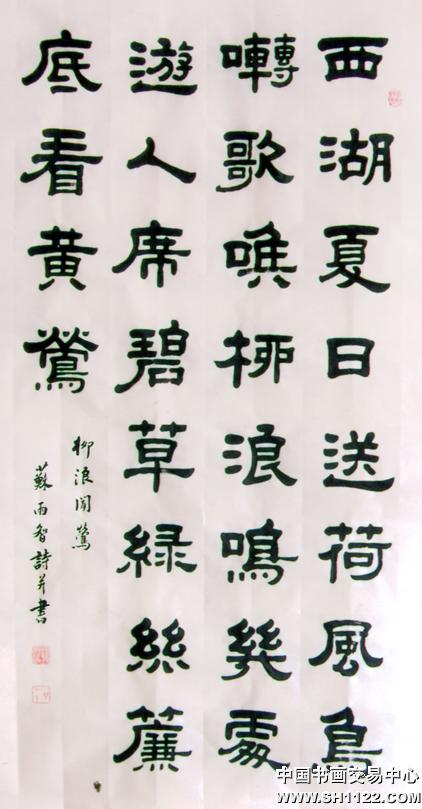 西湖夏日送荷風鳥
囀歌喚柳浪鳴幾處
遊人席碧草緑絲簾
底看黄鶯
柳浪聞鶯
蘇雨智詩并書
中国书画交易中心
WWW.SH1122.COM